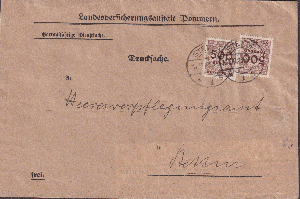 Landesversicherungsanstalt Pommern.
Portopflichtige Dienstsache.
Drucksache.
An
Heeresverpflegungsamt
500 500
Berlin
frei.